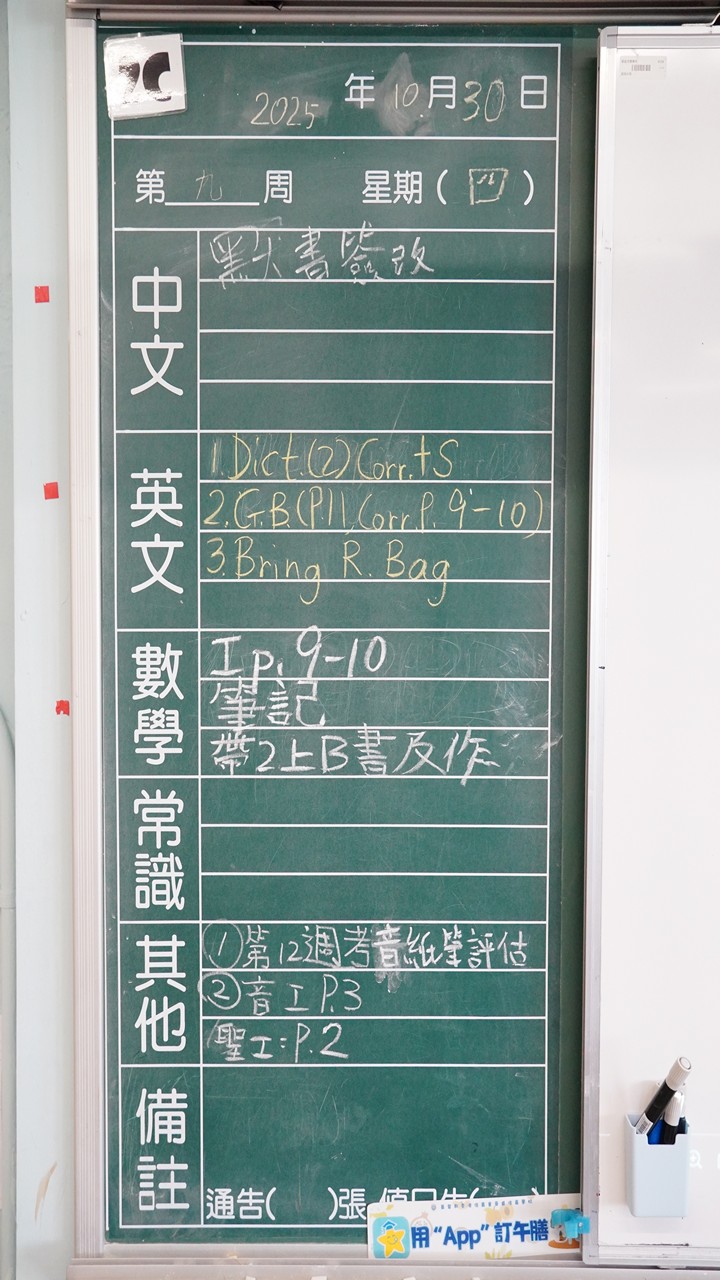 2025 年 10 月 30 日
第 九 周 星期( 四 )
中文
默書簽改
英文
1. Dict.(2) Corr. + S
2. G.B.(P11, Corr. P. 9-10)
3. Bring R. Bag
數學
工 P. 9-10
筆記
帶2上B書及作
常識
其他
① 第12週考音紙筆評估
② 音工 P.3
聖工: P.2
備註
通告( )張
用“App”訂午膳